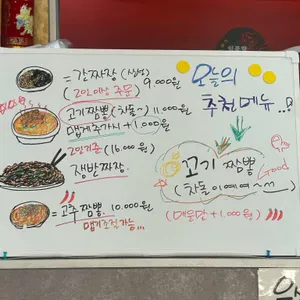 = 간짜장 (1인분)
(2인이상 주문) 9,000원
고기짬뽕 (차돌~) 11,000원
맵게 추가시 + 1,000원
2인기준 (16,000원)
쟁반짜장
= 고추짬뽕. 10,000원
맵기조절가능
오늘의
추천메뉴..
고기 짬뽕
Good
(차돌이예여~~)
(매운맛 + 1,000원)